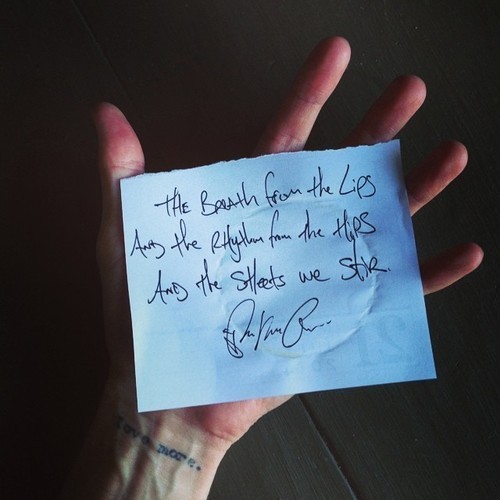 THE BREATH from the Lips
AND the RHythm from the HIPS
AND the SHeets we StiR.
love more.